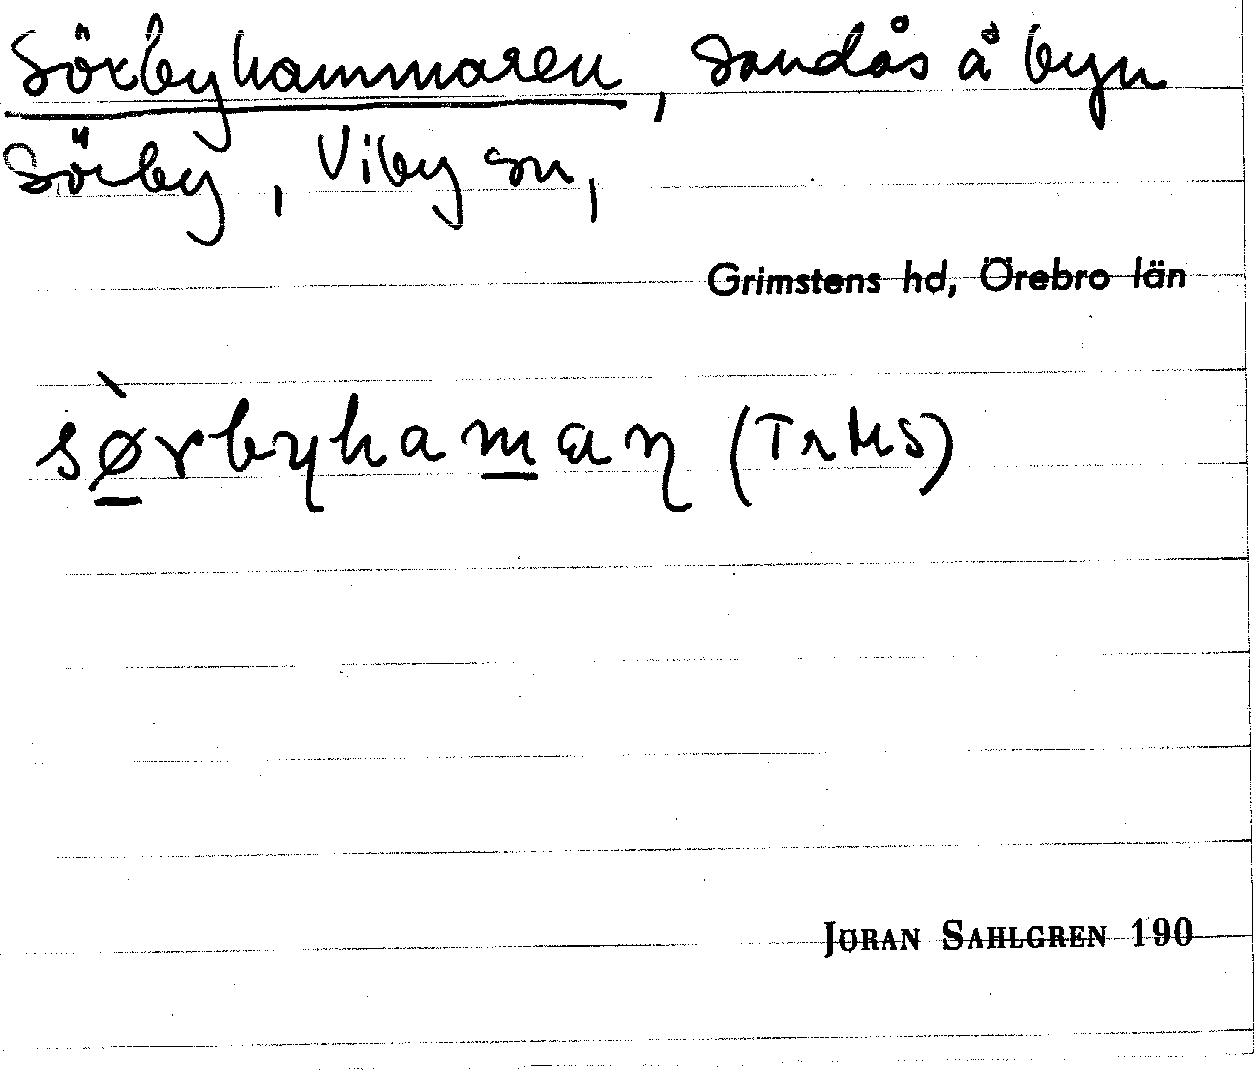 Sörbyhammaren, sandås å byn
Sörby, Viby sn,
Grimstens hd, Örebro län
sø̀rbyhaman (TrHS)
JÖRAN SAHLGREN 190